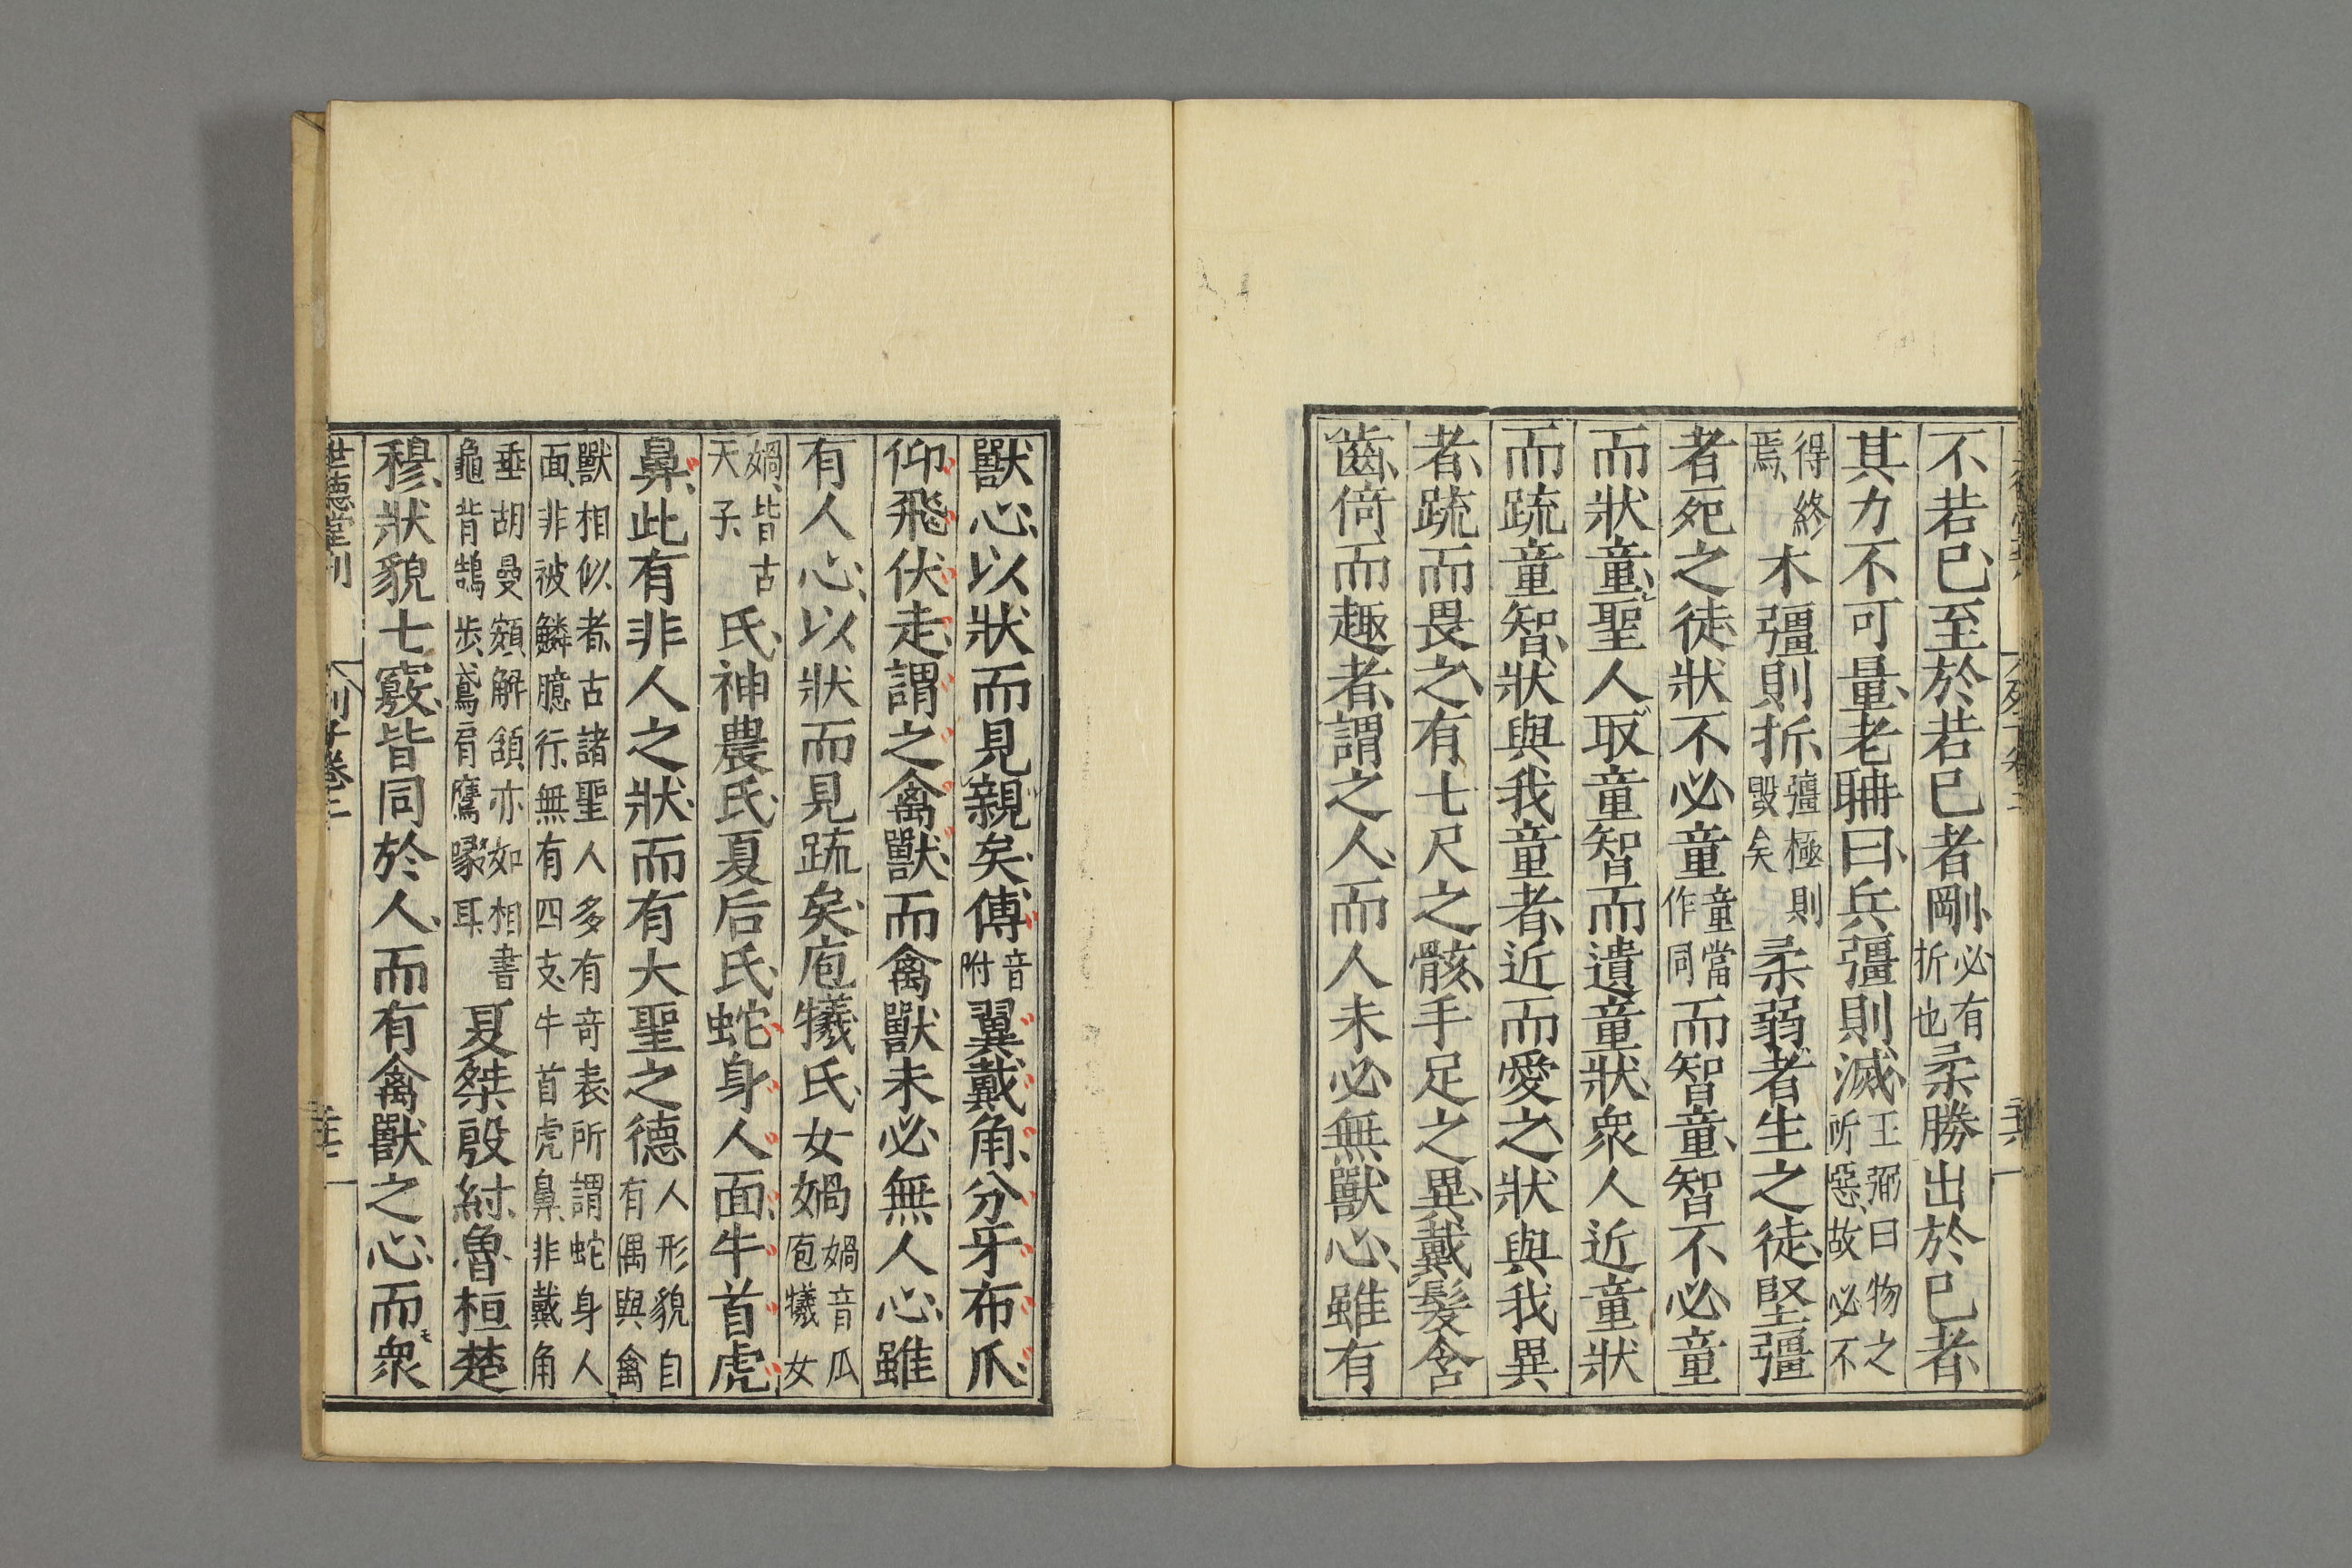 不若已至於若已者剛必有折也柔勝出於已者
其力不可量老聃曰兵彊則滅王弼曰物之所惡故必不
得終焉木彊則折彊極則毀矣柔弱者生之徒堅彊
者死之徒狀不必童童當作同而智童智不必童
而狀童聖人取童智而遺童狀衆人近童狀
而疏童智狀與我童者近而愛之狀與我異
者疏而畏之有七尺之骸手足之異戴髮含
齒倚而趣者謂之人而人未必無獸心雖有
獸心以狀而見親矣傅音附翼戴角分牙布爪
仰飛伏走謂之禽獸而禽獸未必無人心雖
有人心以狀而見疏矣庖犧氏女媧媧音瓜庖犧女
媧皆古天子氏神農氏夏后氏蛇身人面牛首虎
鼻此有非人之狀而有大聖之德人形貌自有偶與禽
獸相似者古諸聖人多有奇表所謂蛇身人面非被鱗臆行無有四支牛首虎鼻非戴角
垂胡曼頞解頷亦如相書龜背鵠步鳶肩鷹喙耳夏桀殷紂魯桓楚
穆狀貌七竅皆同於人而有禽獸之心而衆
世德堂刊 列子卷二